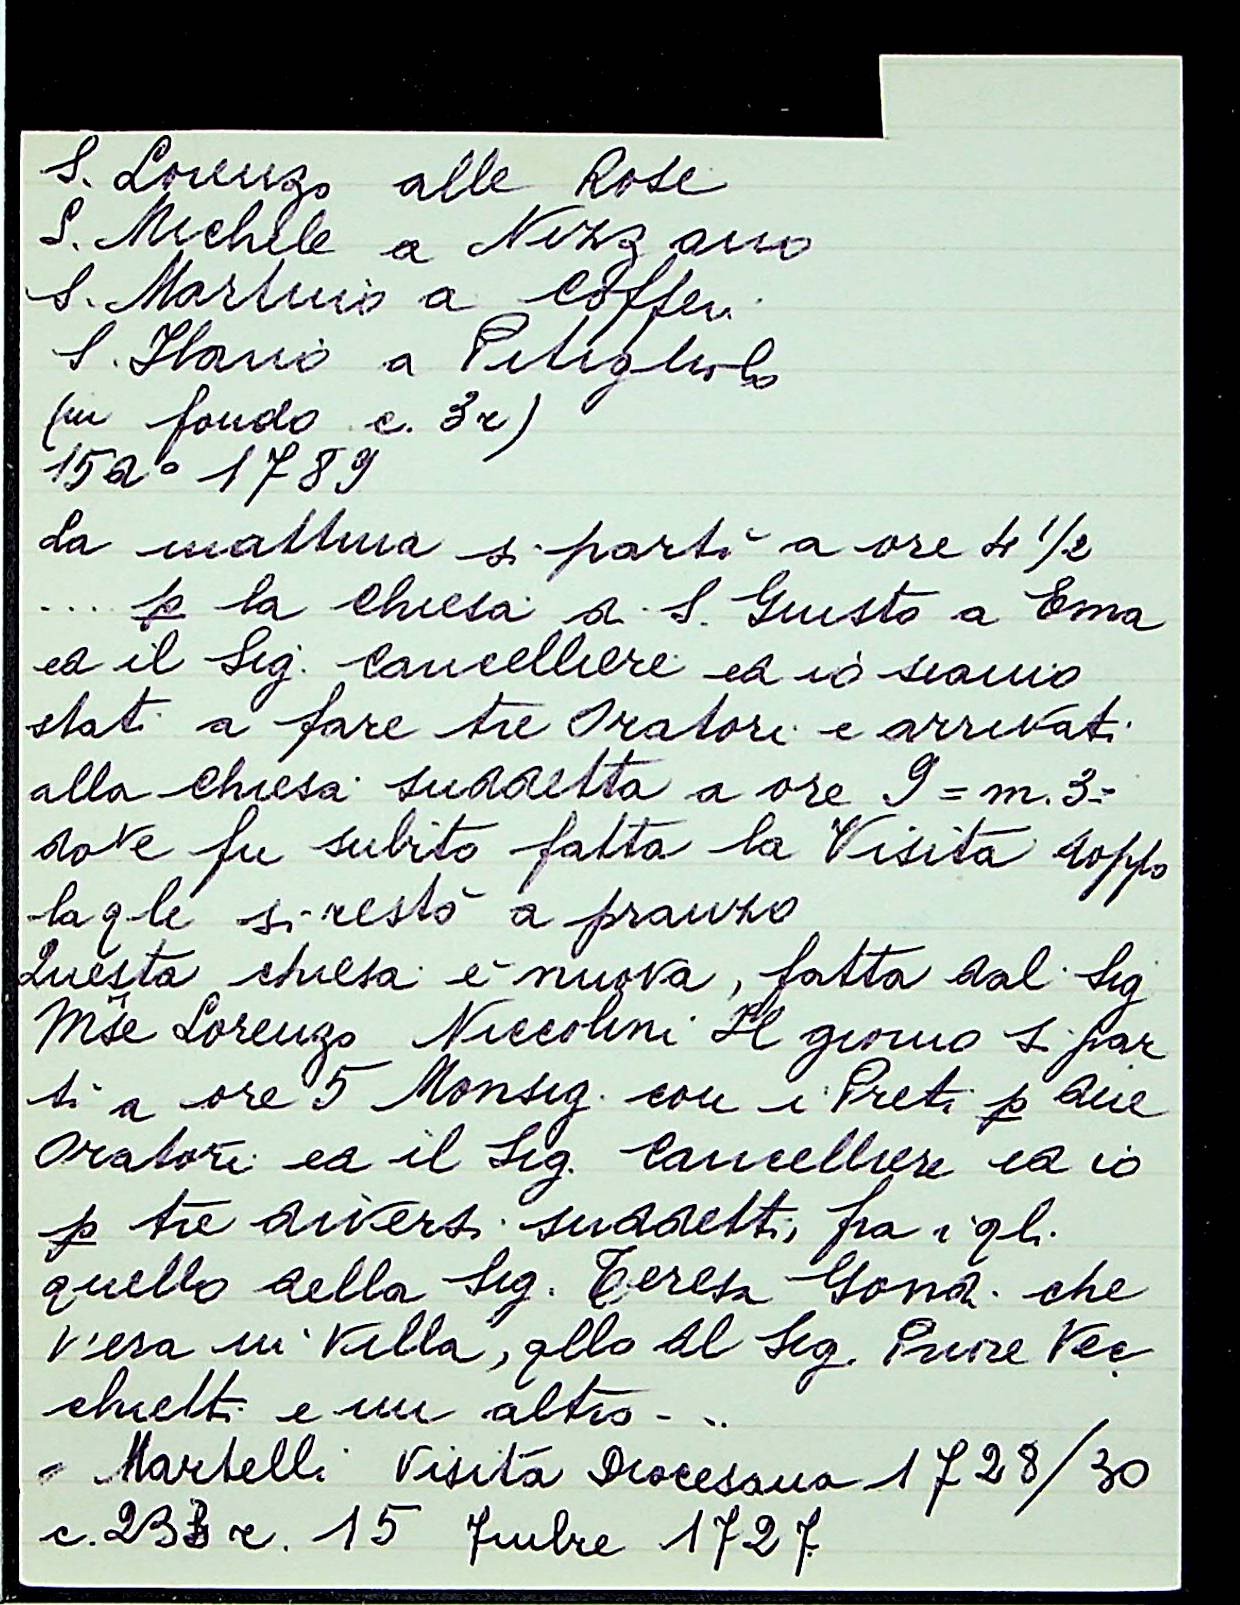 S. Lorenzo alle Rose
S. Michele a Nizzano
S. Martino a Cofferi
S. Ilario a Pitigliolo
(in fondo c. 3r)
15 d° 1789
La mattina si partì a ore 4 1/2
.... p la chiesa di S. Giusto a Ema
ed il Sig. Cancelliere ed io siamo
stati a fare tre Oratori e arrivati
alla chiesa suddetta a ore 9 = m. 3=
dove fu subito fatta la Visita doppo
la qle si restò a pranzo
Questa chiesa è nuova, fatta dal Sig
Mse Lorenzo Niccolini Il giorno si par
tì a ore 5 Monsig. con i Preti p due
Oratori ed il Sig. Cancelliere ed io
p tre diversi suddetti, fra i qli
quello della Sig. Teresa Gondi che
v'era in Villa, qllo dl Sig. Priore Vec
chietti e un altro - ..
- Martelli Visita Diocesana 1728/30
c. 233 r. 15 7mbre 1727